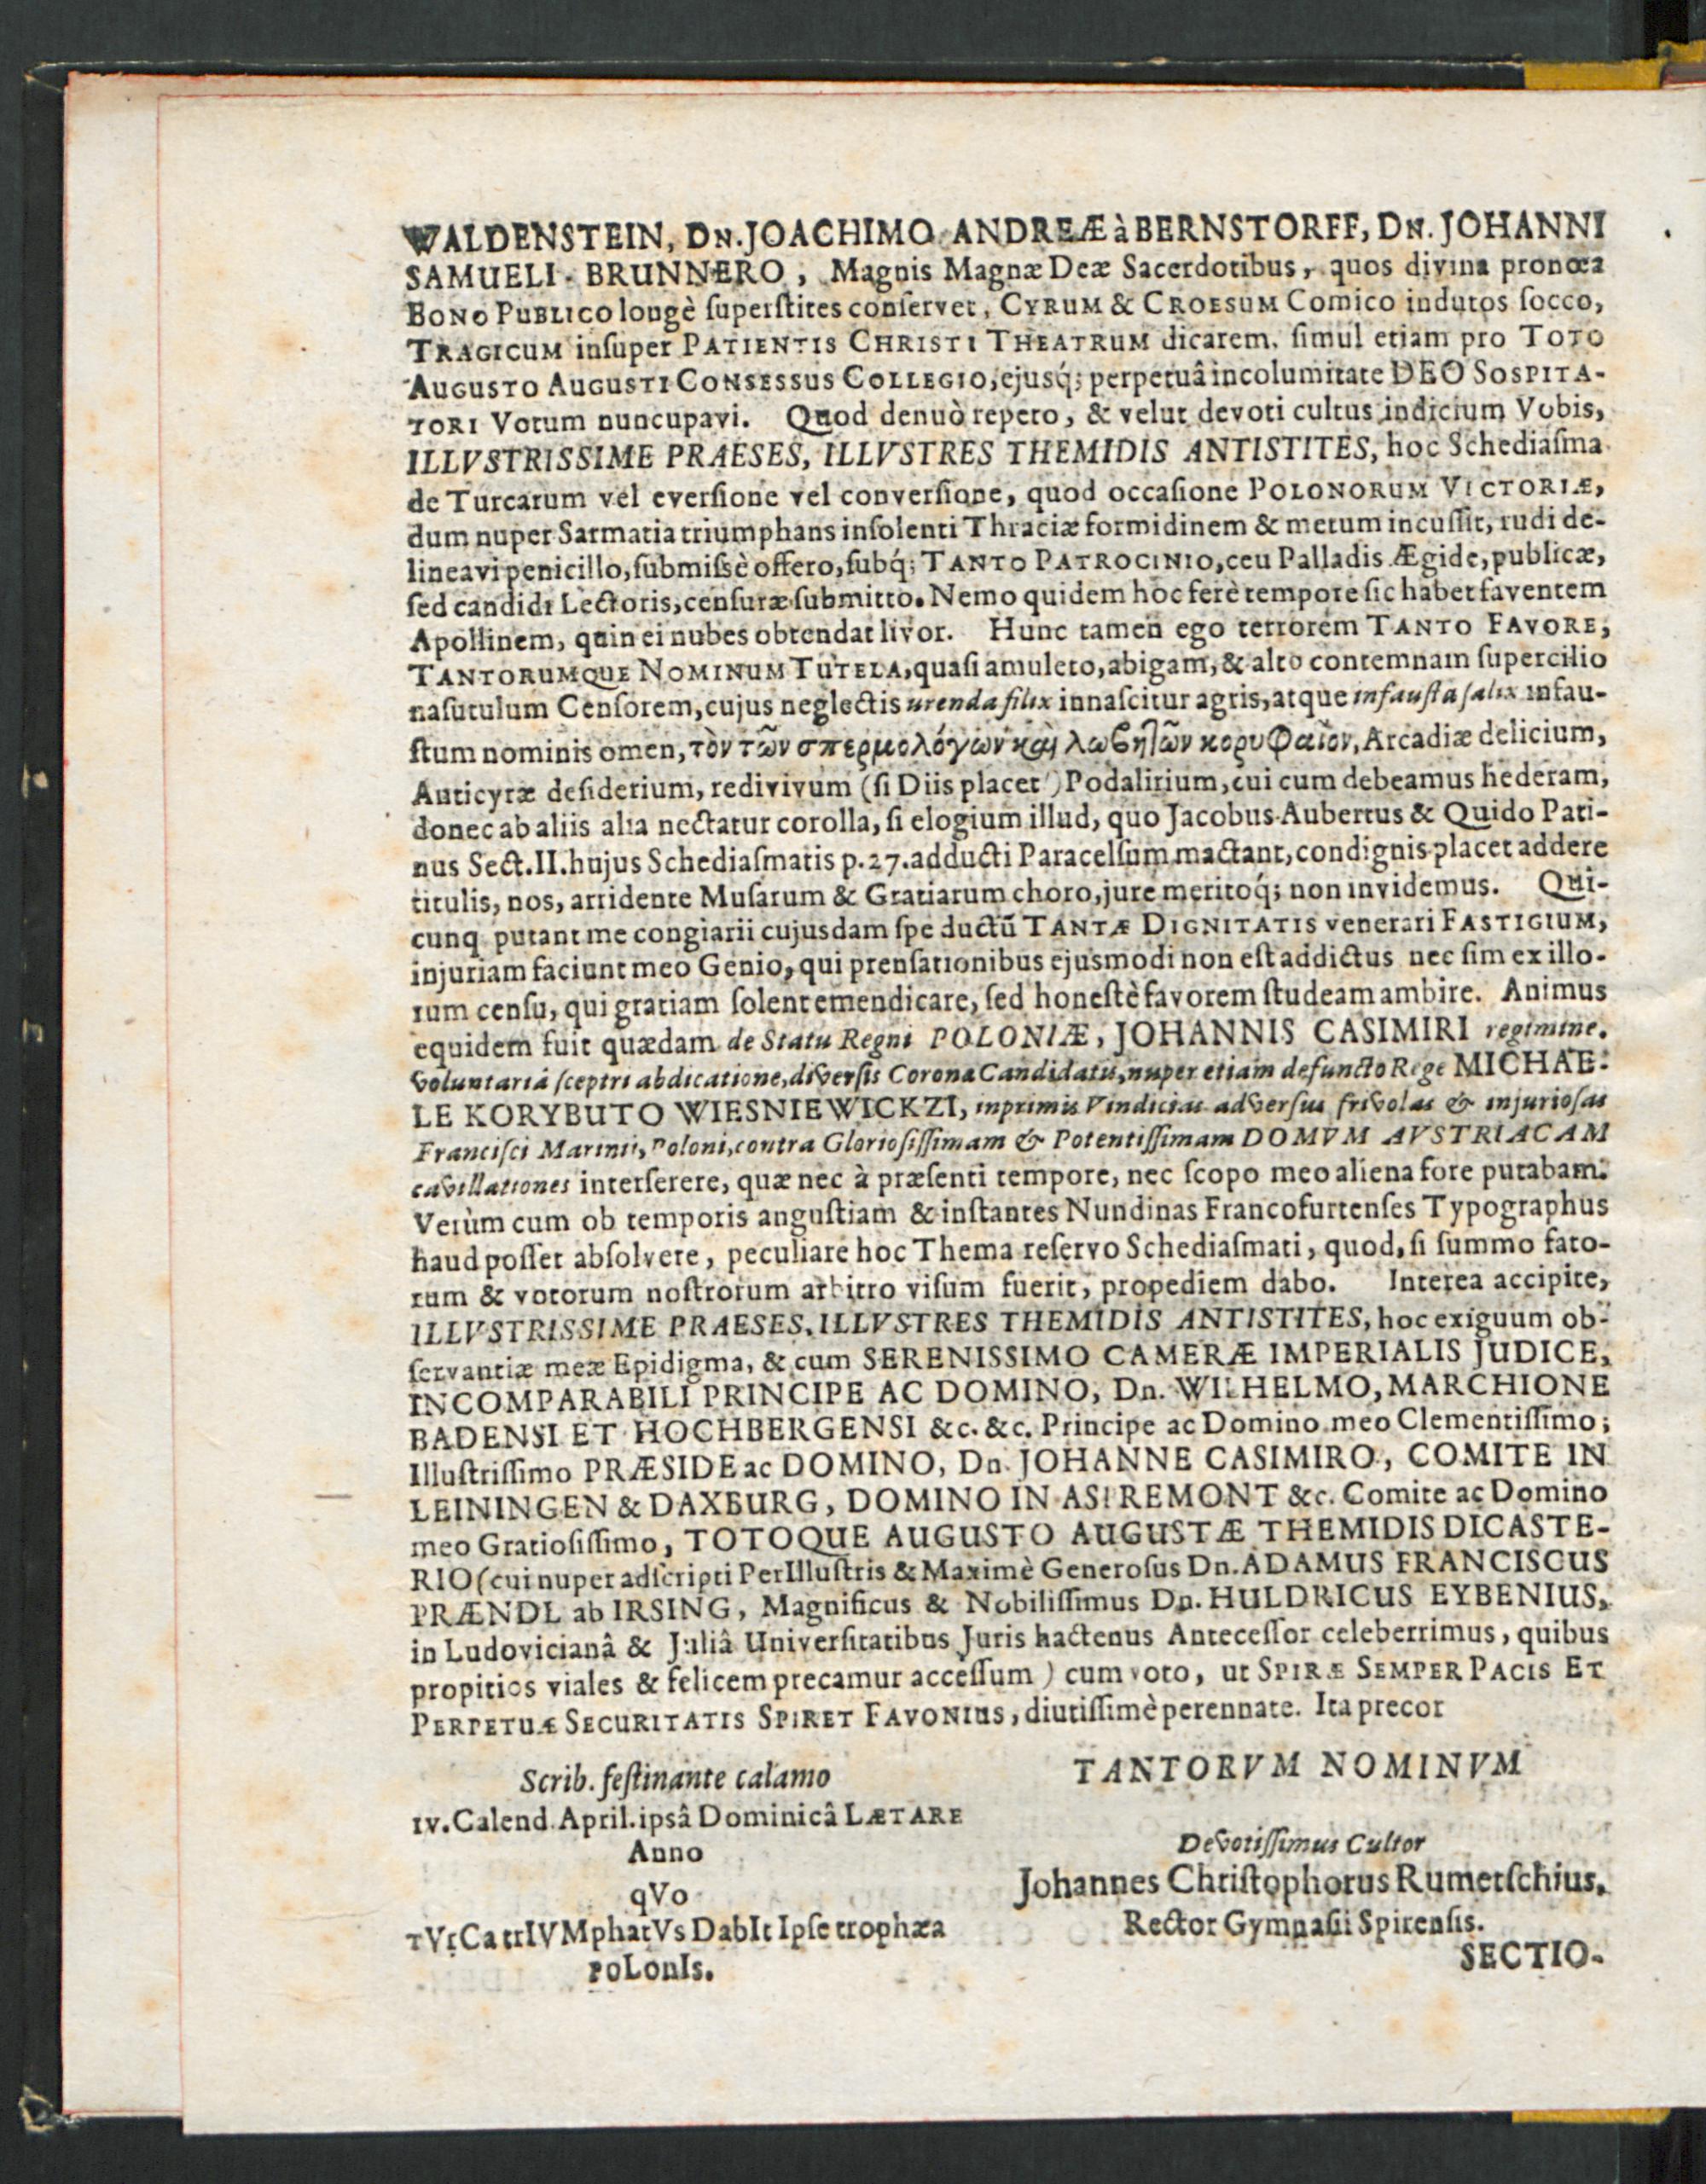 WALDENSTEIN, DN. JOACHIMO ANDREÆ à BERNSTORFF, DN. JOHANNI
SAMUELI BRUNNERO, Magnis Magnæ Deæ Sacerdotibus, quos divina pronœa
BONO PUBLICO longè ſuperſtites conſervet, CYRUM & CROESUM Comico indutos ſocco,
TRAGICUM inſuper PATIENTIS CHRISTI THEATRUM dicarem, ſimul etiam pro TOTO
AUGUSTO AUGUSTI CONSESSUS COLLEGIO, ejusq́; perpetuâ incolumitate DEO SOSPITA-
TORI Votum nuncupavi. Quod denuò repeto, & velut devoti cultus indicium Vobis,
ILLVSTRISSIME PRAESES, ILLVSTRES THEMIDIS ANTISTITES, hoc Schediaſma
de Turcarum vel everſione vel converſione, quod occaſione POLONORUM VICTORIÆ,
dum nuper Sarmatia triumphans inſolenti Thraciæ formidinem & metum incuſſit, rudi de-
lineavi penicillo, ſubmiſsè offero, ſubq́; TANTO PATROCINIO, ceu Palladis Ægide, publicæ,
ſed candidi Lectoris, cenſuræ ſubmitto. Nemo quidem hoc ferè tempore ſic habet faventem
Apollinem, quin ei nubes obtendat livor. Hunc tamen ego terrorem TANTO FAVORE,
TANTORUMQUE NOMINUM TUTELA, quaſi amuleto, abigam, & alto contemnam ſupercilio
naſutulum Cenſorem, cujus neglectis urenda filix innaſcitur agris, atque infauſta ſalix infau-
ſtum nominis omen, τὸν τῶν σπερμολόγων καὶ λωβητῶν κορυφαῖον, Arcadiæ delicium,
Anticyræ deſiderium, redivivum (ſi Diis placet) Podalirium, cui cum debeamus hederam,
donec ab aliis alia nectatur corolla, ſi elogium illud, quo Jacobus Aubertus & Quido Pati-
nus Sect. II. hujus Schediaſmatis p. 27. adducti Paracelſum mactant, condignis placet addere
titulis, nos, arridente Muſarum & Gratiarum choro, jure meritoq́; non invidemus. Qui-
cunq putant me congiarii cujusdam ſpe ductũ TANTÆ DIGNITATIS venerari FASTIGIUM,
injuriam faciunt meo Genio, qui prenſationibus ejusmodi non eſt addictus nec ſim ex illo-
rum cenſu, qui gratiam ſolent emendicare, ſed honeſtè favorem ſtudeam ambire. Animus
equidem fuit quædam de Statu Regni POLONIÆ, JOHANNIS CASIMIRI regimine.
voluntariâ ſceptri abdicatione, diverſis Corona Candidatis, nuper etiam defuncto Rege MICHAE-
LE KORYBUTO WIESNIEWICKZI, inprimis Vindicias adverſus frivolas & injurioſas
Franciſci Marinii, Poloni, contra Glorioſiſſimam & Potentiſſimam DOMVM AVSTRIACAM
cavillationes interſerere, quæ nec à præſenti tempore, nec ſcopo meo aliena fore putabam.
Verùm cum ob temporis anguſtiam & inſtantes Nundinas Francofurtenſes Typographus
haud poſſet abſolvere, peculiare hoc Thema reſervo Schediaſmati, quod, ſi ſummo fato-
rum & votorum noſtrorum arbitro viſum fuerit, propediem dabo. Interea accipite,
ILLVSTRISSIME PRAESES, ILLVSTRES THEMIDIS ANTISTITES, hoc exiguum ob-
ſervantiæ meæ Epidigma, & cum SERENISSIMO CAMERÆ IMPERIALIS JUDICE,
INCOMPARABILI PRINCIPE AC DOMINO, Dn. WILHELMO, MARCHIONE
BADENSI ET HOCHBERGENSI &c. &c. Principe ac Domino meo Clementiſſimo;
Illuſtriſſimo PRÆSIDE ac DOMINO, Dn. JOHANNE CASIMIRO, COMITE IN
LEININGEN & DAXBURG, DOMINO IN ASPREMONT &c. Comite ac Domino
meo Gratioſiſſimo, TOTOQUE AUGUSTO AUGUSTÆ THEMIDIS DICASTE-
RIO (cui nuper adſcripti PerIlluſtris & Maximè Generoſus Dn. ADAMUS FRANCISCUS
PRÆNDL ab IRSING, Magnificus & Nobiliſſimus Dn. HULDRICUS EYBENIUS,
in Ludovicianâ & Juliâ Univerſitatibus Juris hactenus Anteceſſor celeberrimus, quibus
propitios viales & felicem precamur acceſſum) cum voto, ut SPIRÆ SEMPER PACIS ET
PERPETUÆ SECURITATIS SPIRET FAVONIUS, diutiſſimè perennate. Ita precor
TANTORVM NOMINVM
Scrib. feſtinante calamo
IV. Calend. April. ipsâ Dominicâ LÆTARE
Anno
qVo
TVrCa trIVMphatVs DabIt Ipſe trophæa
PoLonIs.
Devotiſſimus Cultor
Johannes Chriſtophorus Rumetſchius,
Rector Gymnaſii Spirenſis.
SECTIO-